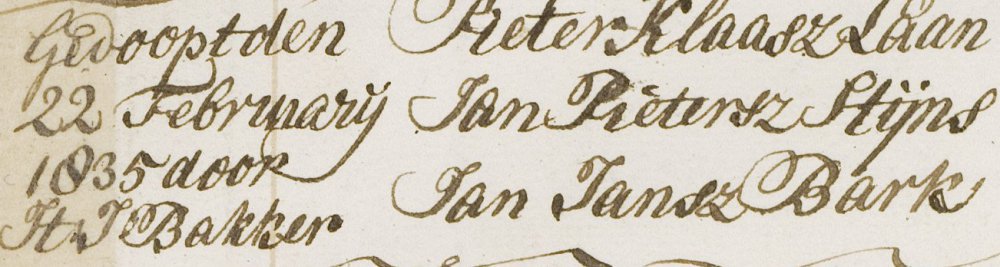 Gedoopt den
22 February
1835 door
Ht. Js Bakker
Pieter Klaasz Laan
Jan Pietersz Stijns
Jan Jansz Bark